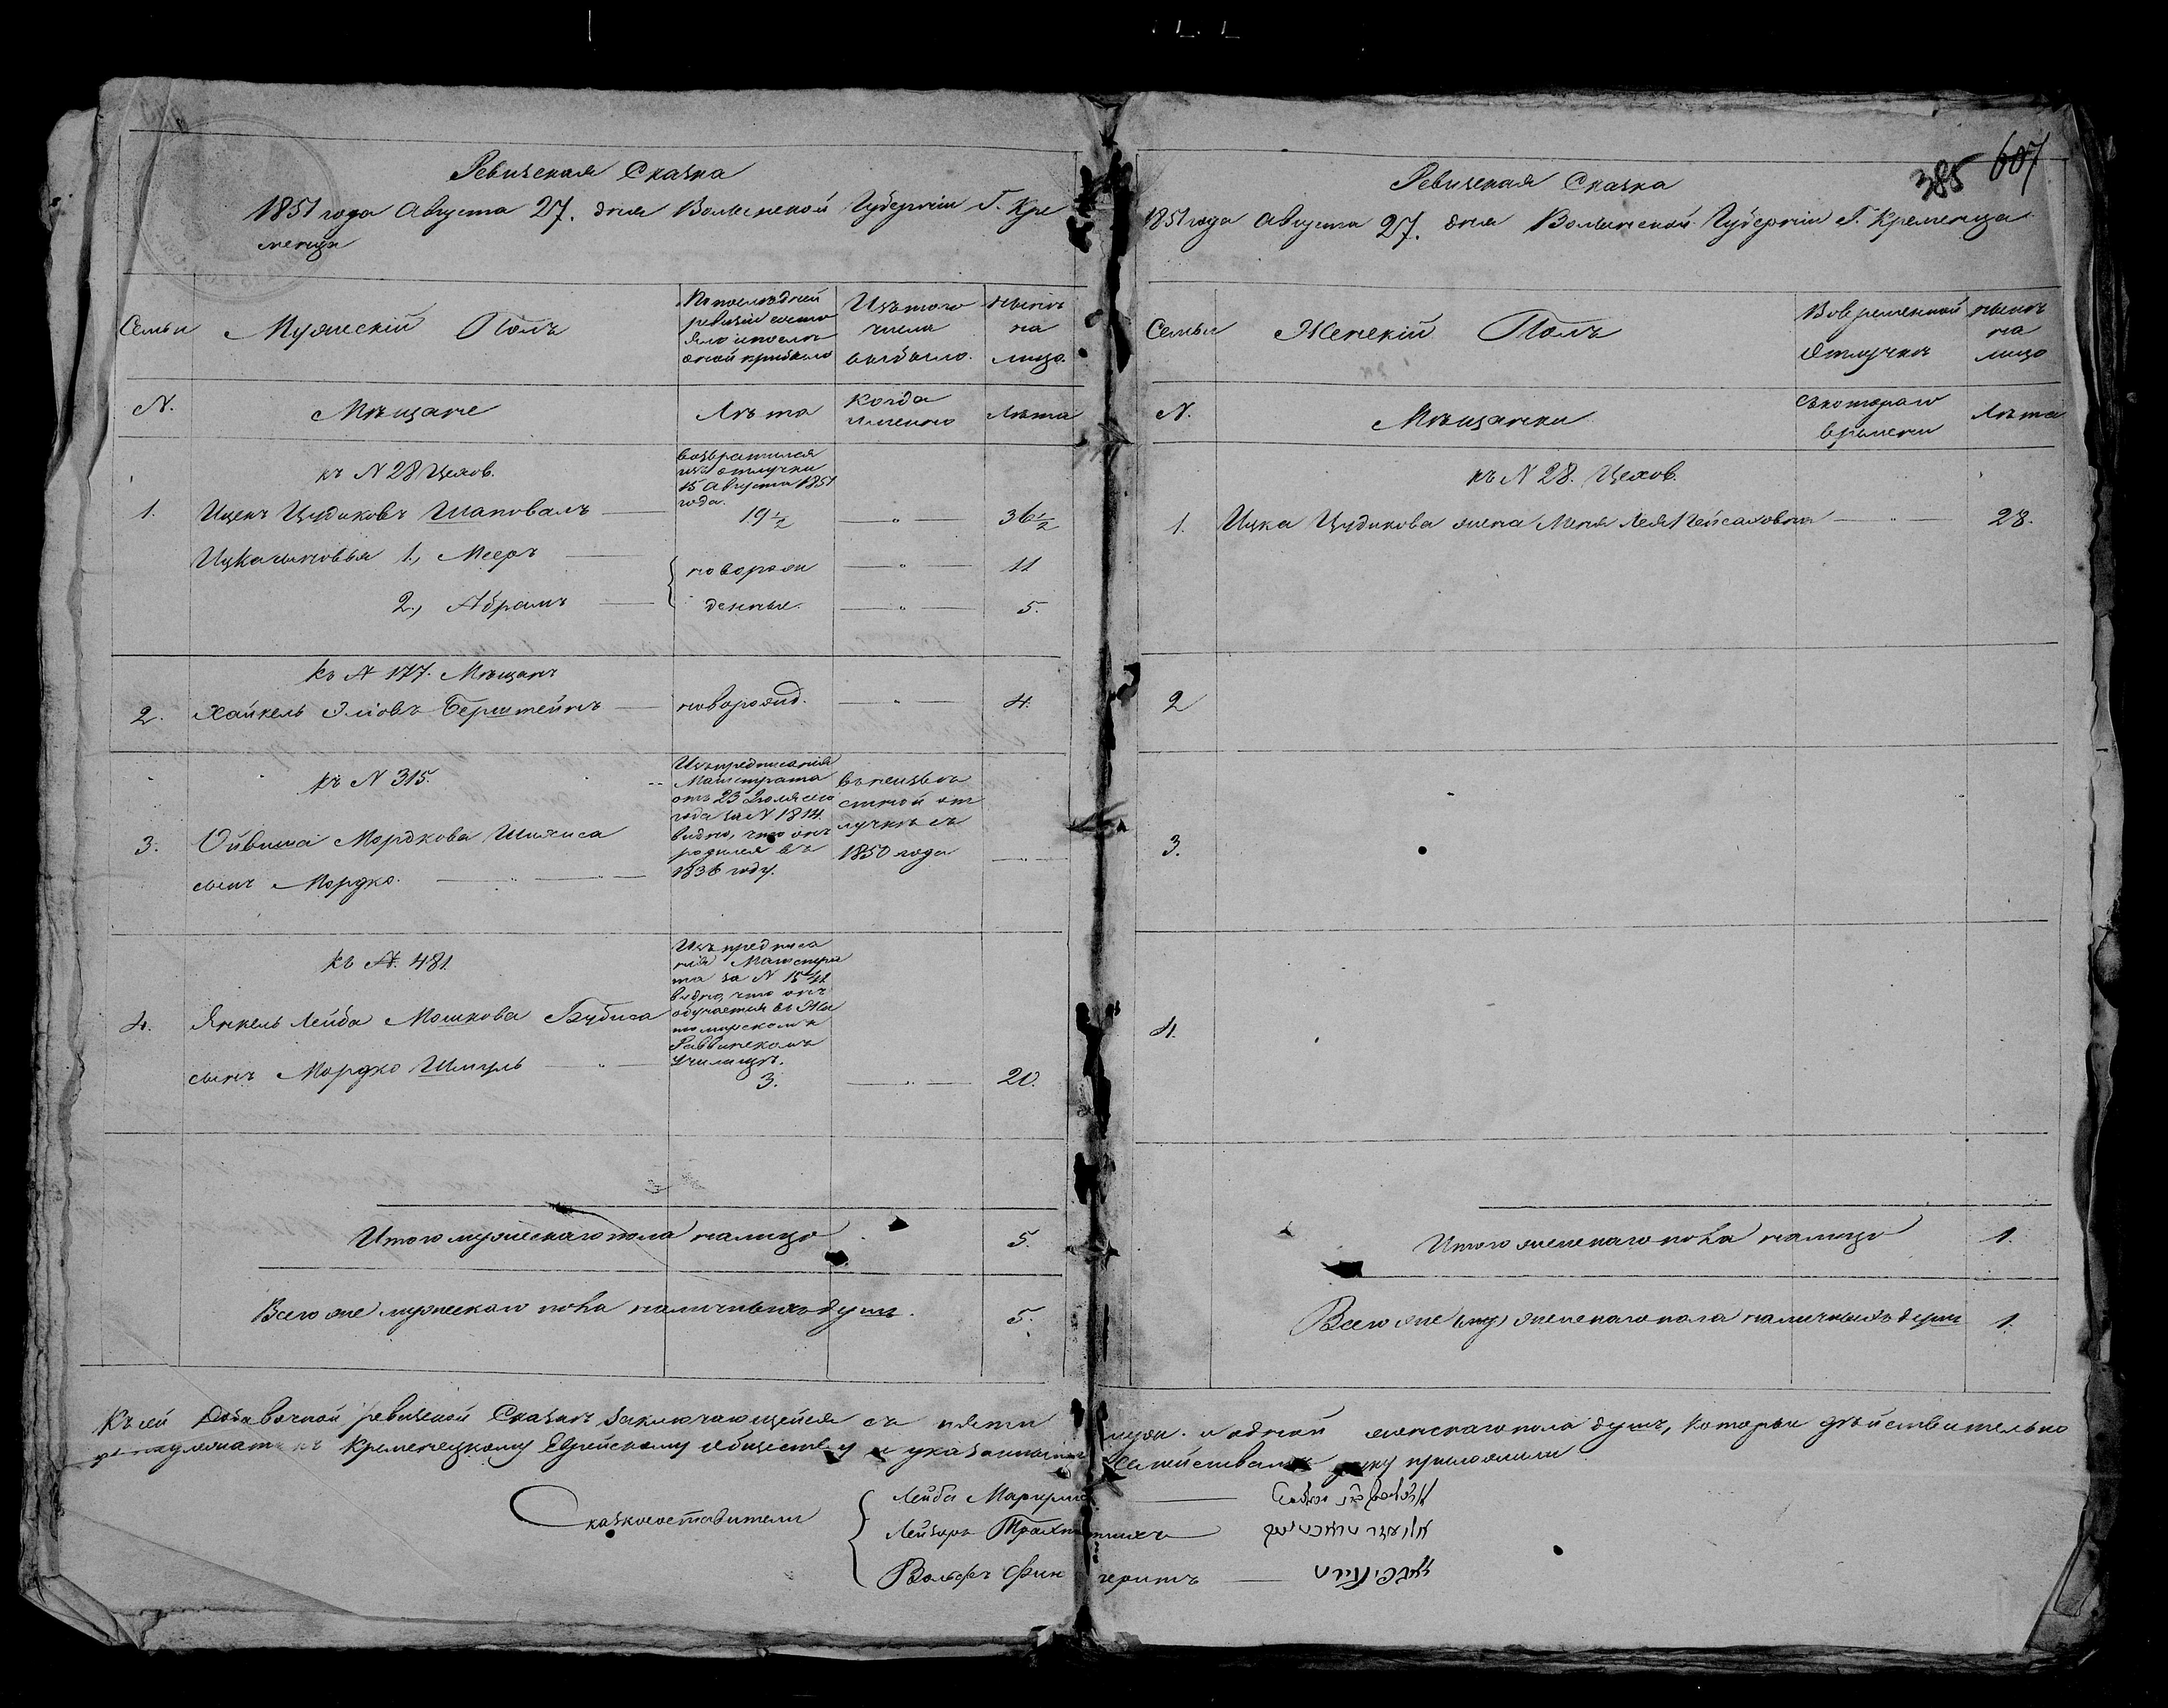 Ревизская Сказка
1851 года Августа 27. дня Волынской Губерніи Г. Кре
менца
Семьи
Мужескій Полъ
По последней
ревизіи состо
яло и после
оной прибыло
Изъ того
числа
выбыло.
ныне
на
лицо.
N.
Мѣщане
Лѣта
Когда
именно
Лѣта
къ N 28 Цехов.
возвратился
изъ отлучки
15 Августа 1851
года.
1. Ицекъ Цудиковъ Шаповалъ 19½ — " — 36½
Ицка сыновья 1., Мееръ — " — 11
новорож
2., Абрамъ денные. — " — 5.
къ N 177. Мѣщанъ
2. Хайкель Эліовъ Берштейнъ новорожд. — " — 4.
къ N 315.
Изъ предписанія
Магистрата
отъ 23 Іюля сего
года за N 1814
видно, что онъ
родился въ
1836 году.
въ неизвѣ
стной от
лучкѣ съ
1850 года
3. Мордкова
сынъ Мордко. — " — " —
къ N. 481.
Изъ предписа
нія Магистра
та за N 1541
видно, что онъ
обучается въ Жи
томирскомъ
Раввинскомъ
училищѣ.
4. Янкель Лейба Мошкова Бубиса
сынъ Мордко Шмуль — " — 3. — " — 20.
Итого мужескаго пола налицо 5.
Всего же мужескаго пола наличныхъ душъ. 5.
Ревизская Сказка
385 607
1851 года Августа 27. дня Волынской Губерніи Г. Кременца
Семьи
Женскій Полъ
Вовременной
отлучкѣ
ныне
на
лицо
N.
Мѣщанки
Съ котораго
времени
Лѣта
къ N 28. Цехов.
1. Ицка Цудикова жена Меня Лея Пейсаховна — " — 28.
2
3.
4.
Итого женскаго пола налицо 1.
Всего же женскаго пола наличныхъ душъ 1.
Къ сей Добавочной ревизской Сказкѣ заключающейся съ пяти муж. и одной женскаго пола душъ, которые дѣйствительно
Кременецкому Еврейскому обществу и указаннымъ Семействамъ руку приложили
Сказкосоставители
Лейба
Лейзоръ
Вольфъ